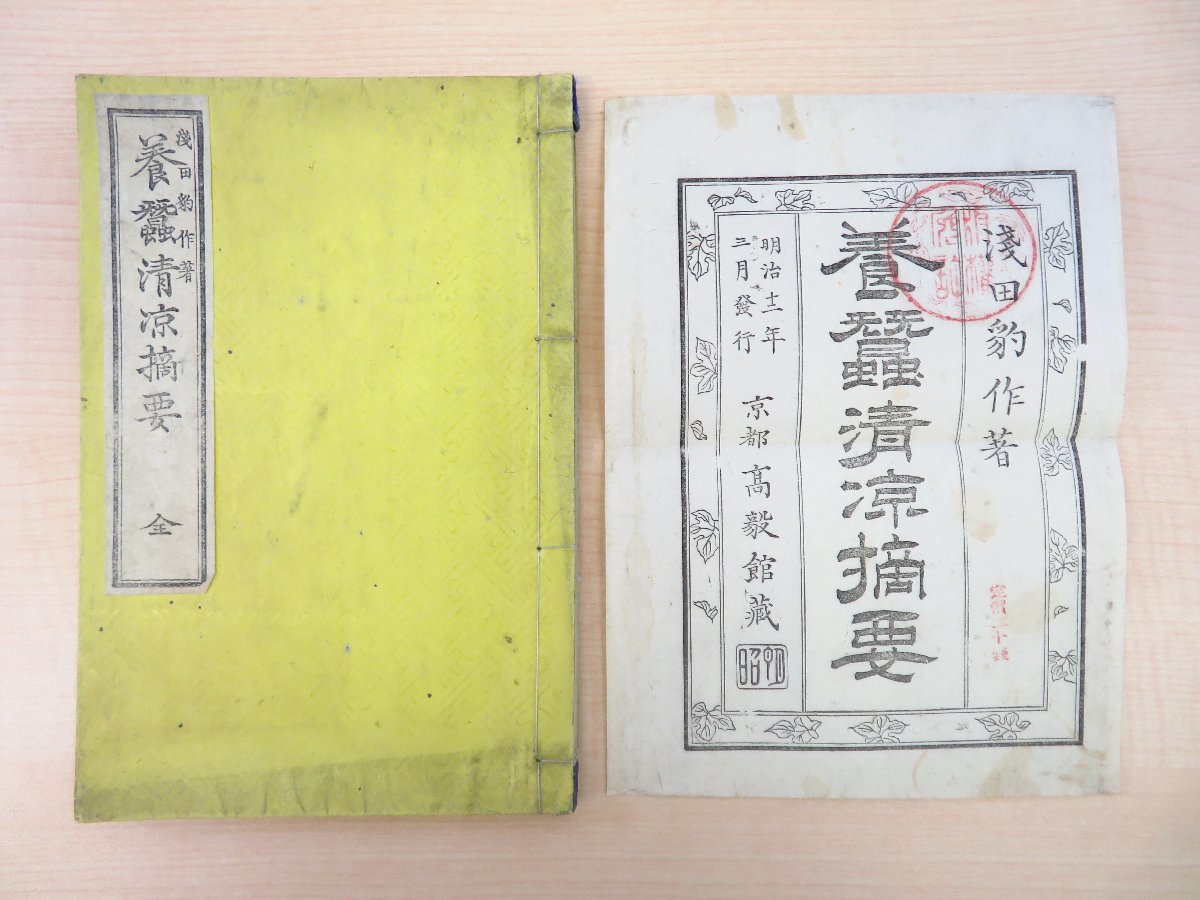 淺田豹作著
養蠶清凉摘要
全
淺田豹作著
養蠶清凉摘要
明治十二年
三月發行
京都高毅館藏